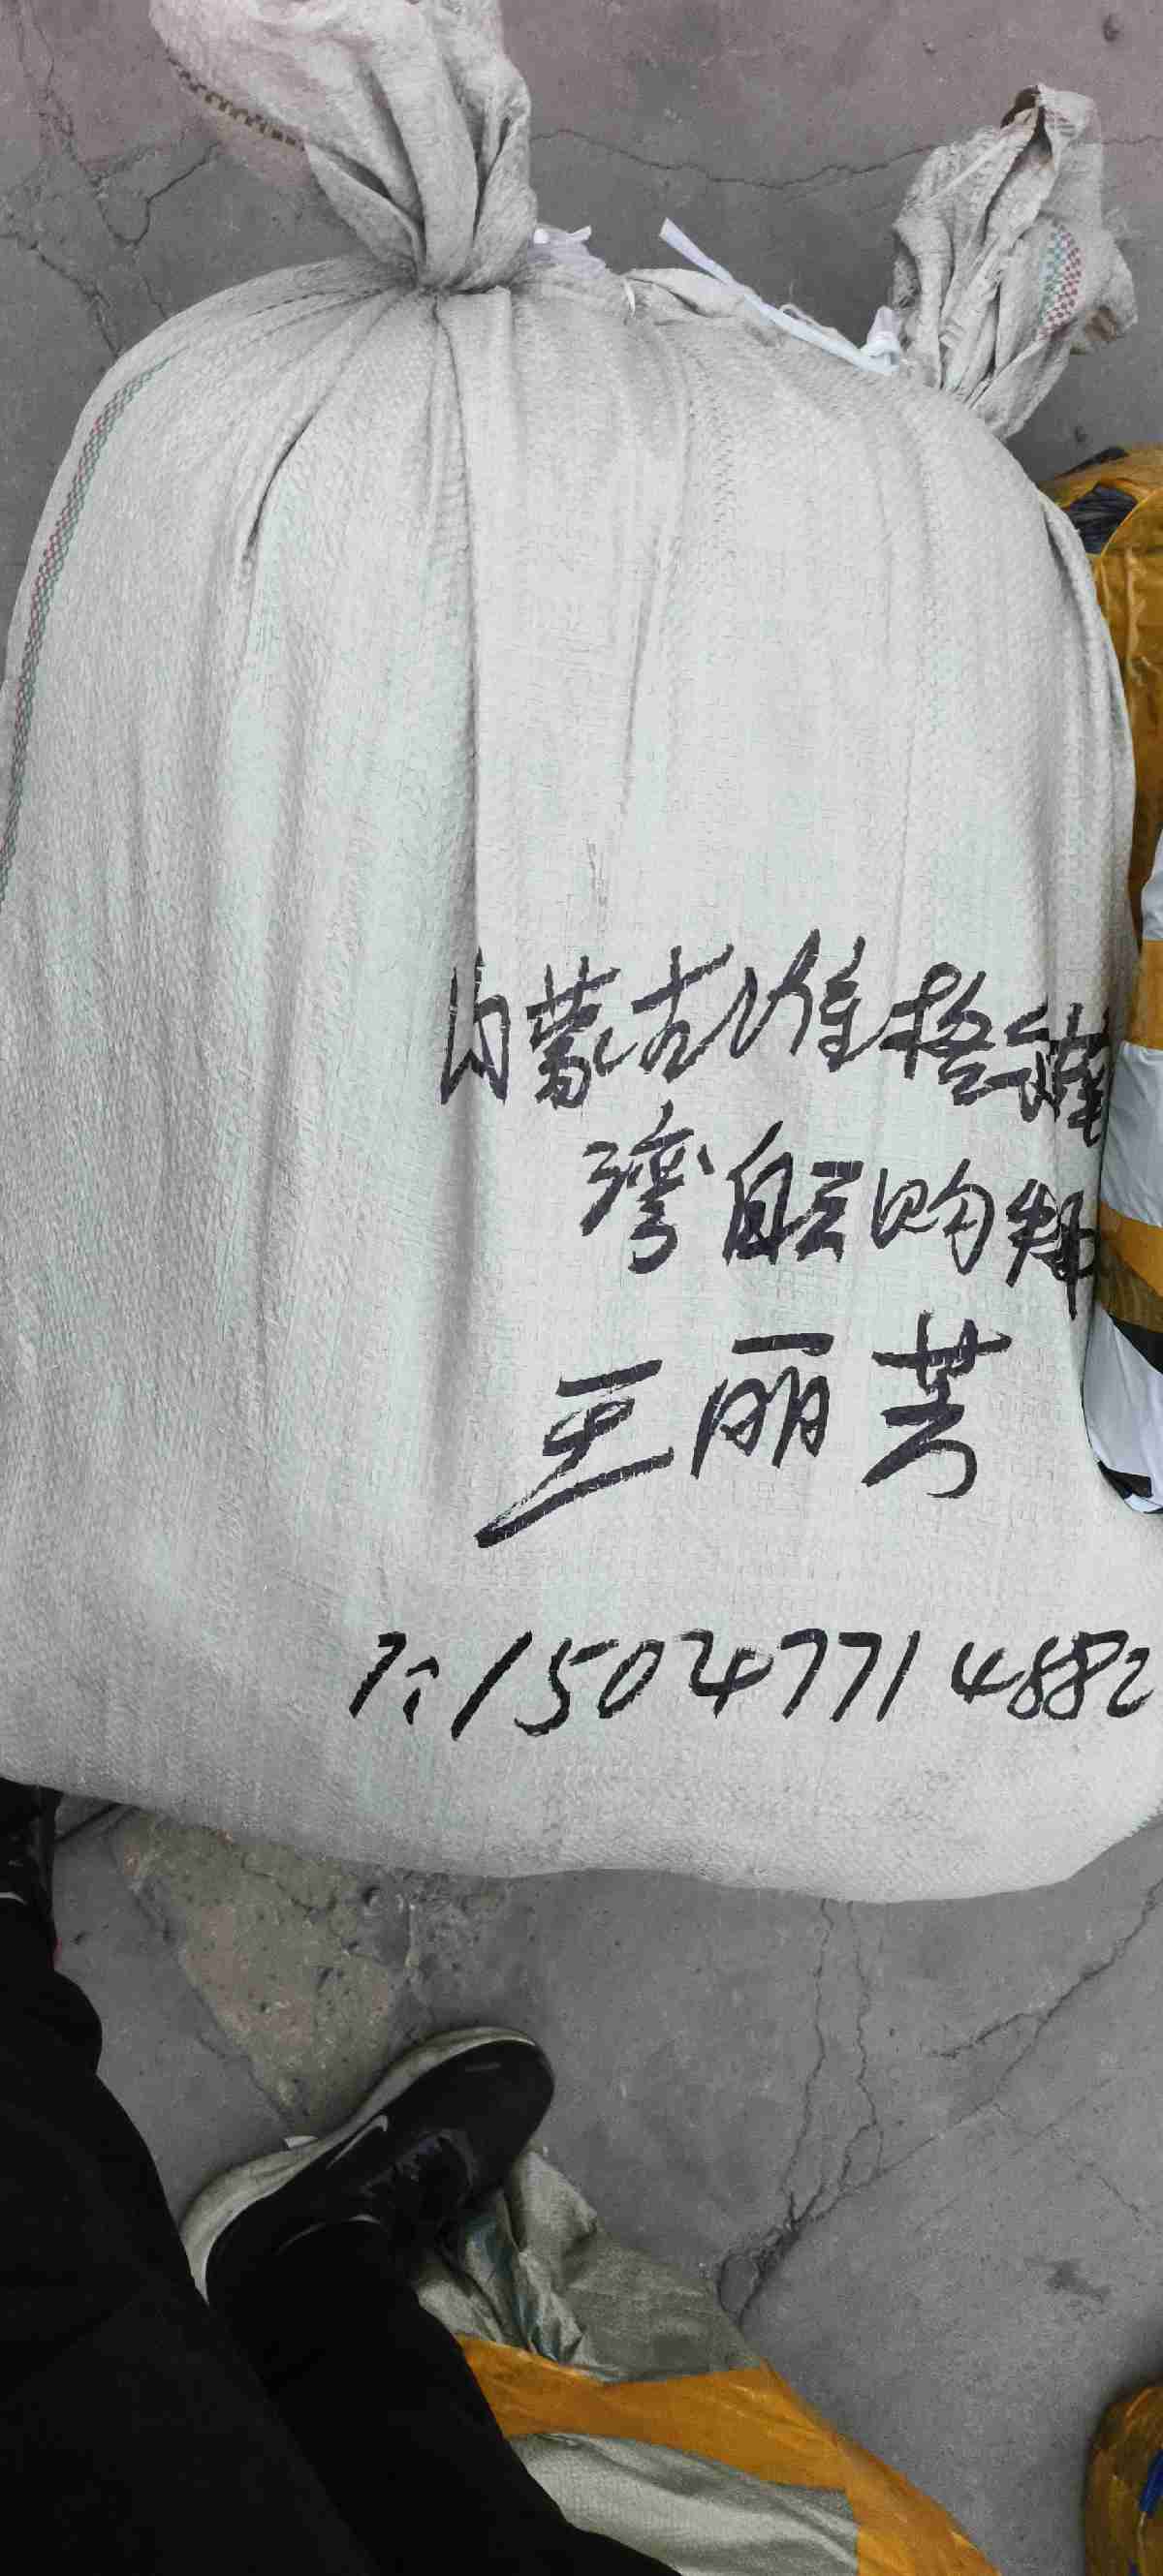 内蒙古准格尔薛
湾自立购物
王丽芳
15047714882